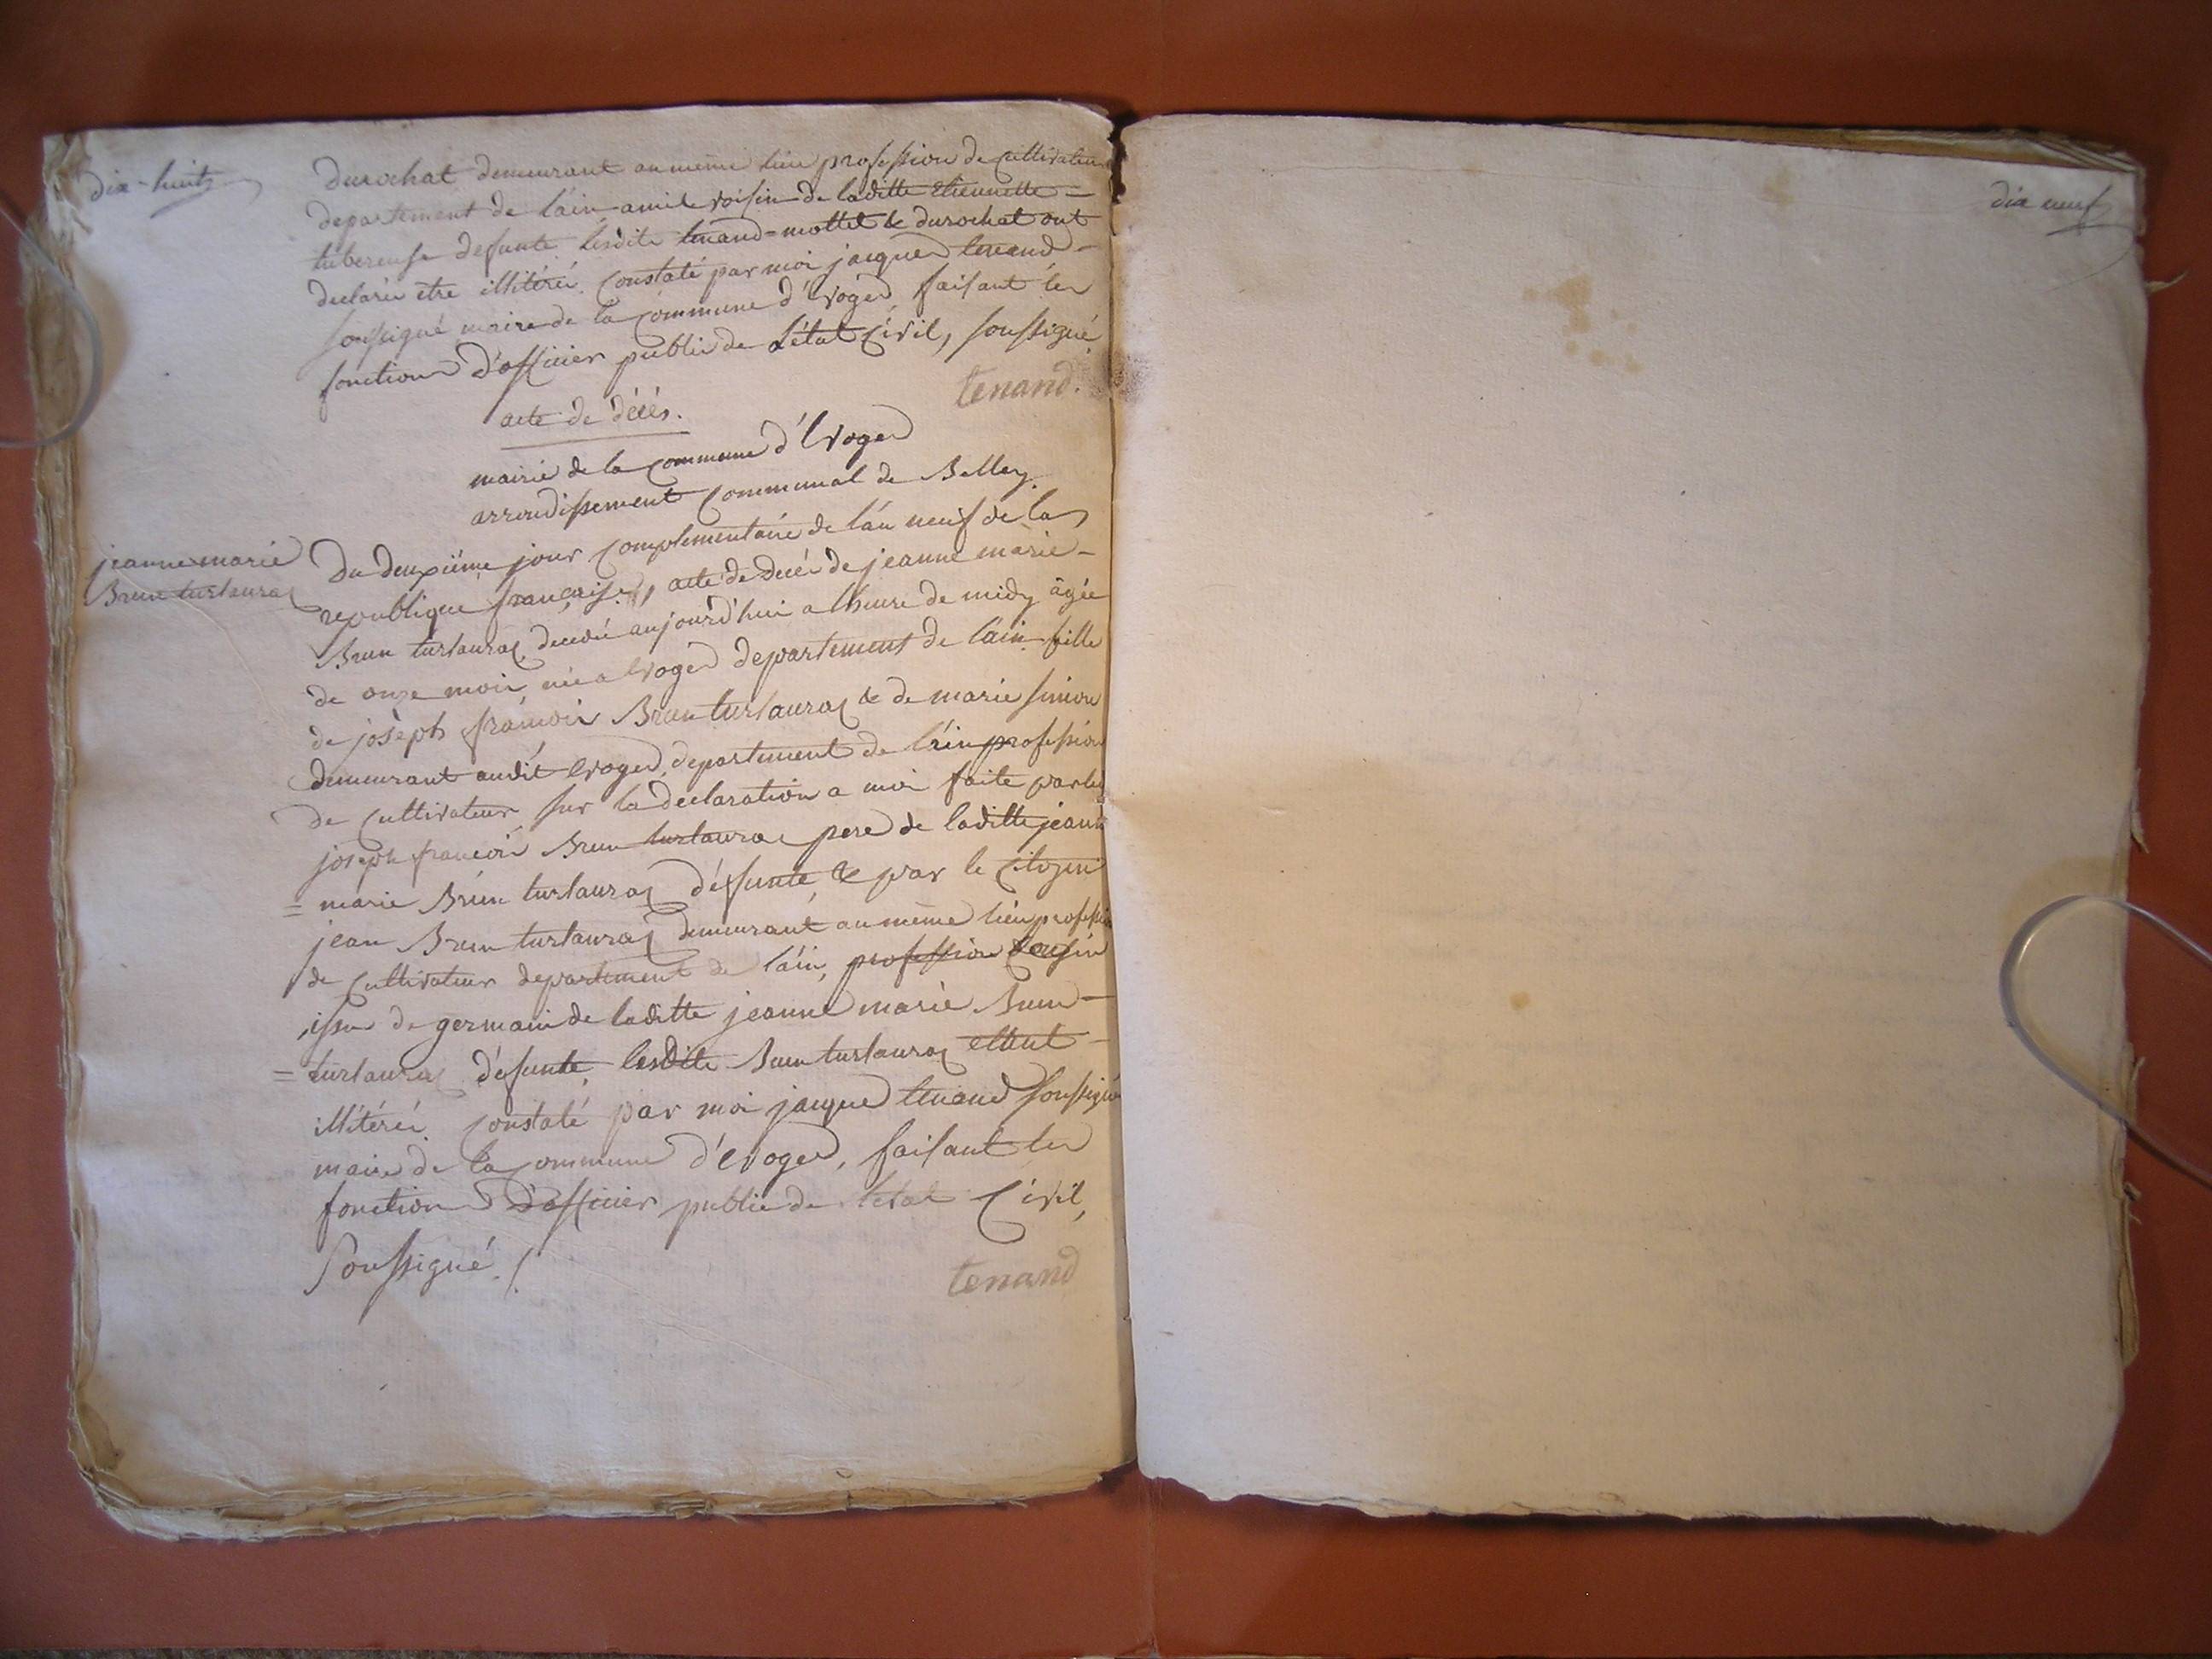 dix-huit
durochat demeurant au même lieu profession de cultivateur
departement de l'ain amit voisin de laditte etiennette =
defunte lesdits tenand = mottet & durochat ont
declarés être illitéré. Constaté par moi jacques tenand -
soussigné maire de la commune d'Evoges, faisant les
fonctions d'officier public de L'état Civil, soussigné
tenand.
acte de décés.
mairie de la Commune d'Evoges
arrondissement Communal de Belley.
jeanne marie
Brun turlauraz
Du deuxiéme jour Complémentaire de l'an neuf de la
republique française, acte de decés de jeanne marie -
Brun turlauraz decedée aujourd'hui a lheure de midy âgée
de onze mois, née a Evoges departement de l'ain fille
de joseph françois Brun turlauraz & de marie simon
demeurant audit Evoges, departement de l'ain profession
de Cultivateur sur la declaration a moi faite par led
joseph françois Brun turlauraz pere de laditte jeanne
= marie Brun turlauraz défunte, & par le Citoyen
jean Brun turlauraz demeurant au même lieu profession
de Cultivateur departement de l'ain, profession Cousin
issu de germain de laditte jeanne marie Brun -
= turlauraz défunte, lesdits Brun turlauraz étant -
illitéré. Constaté par moi jacques tenand soussigné
maire de la Commune d'Evoges, faisant les
fonctions d'officier public de l'etat Civil,
Soussigné./.
tenand
dix neuf